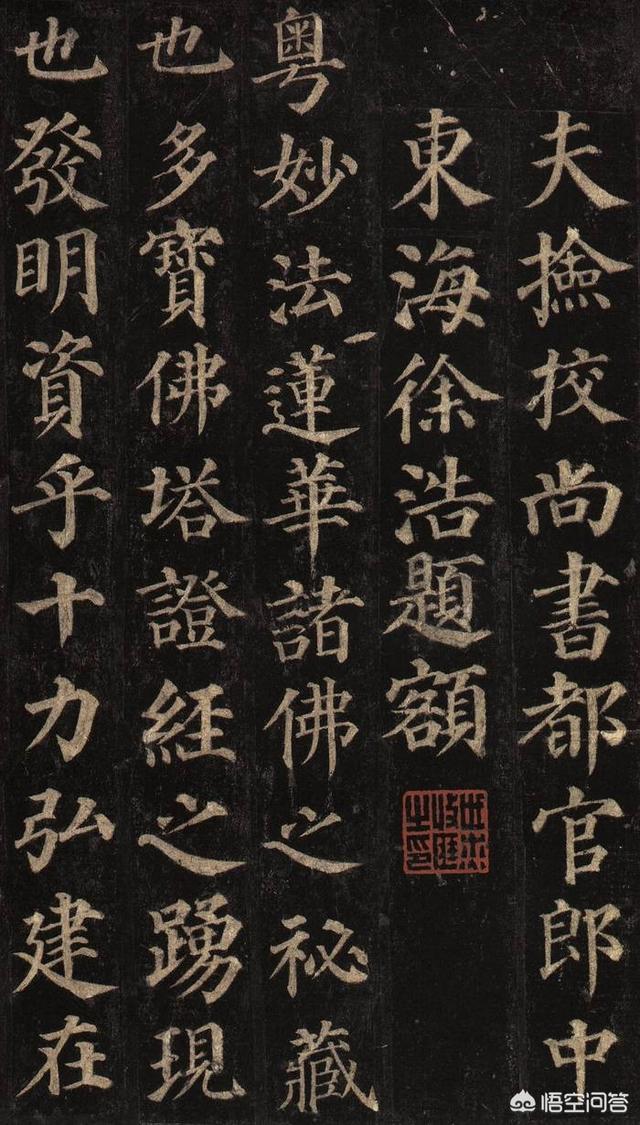 夫撿挍尚書都官郎中
東海徐浩題額
粵妙法蓮華諸佛之祕藏
也多寶佛塔證經之踴現
也發明資乎十力弘建在
悟空问答